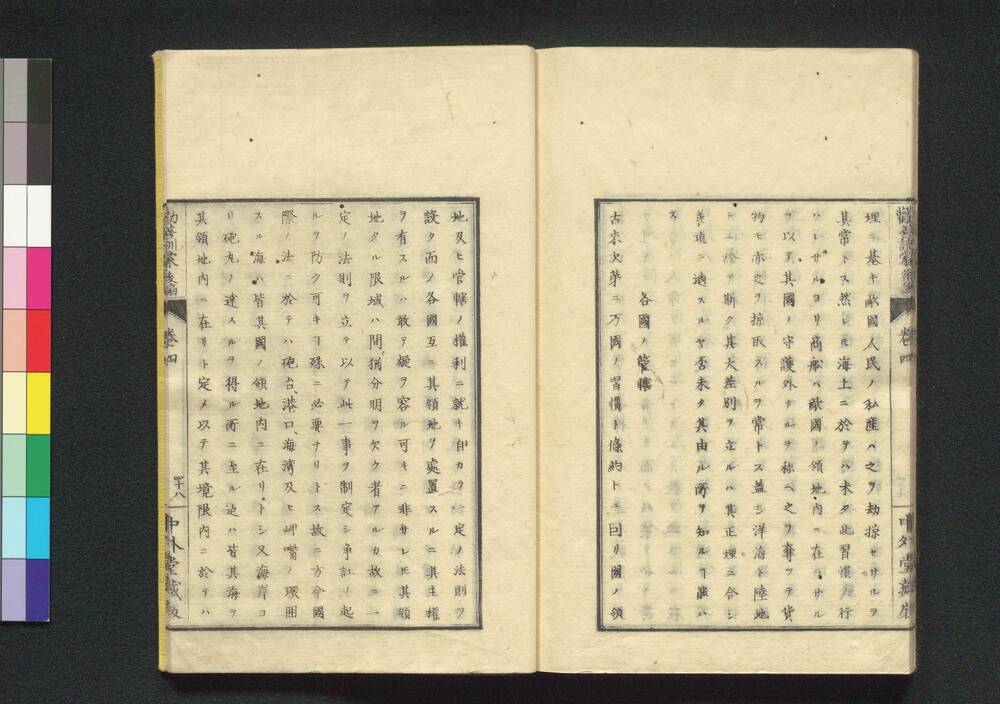 理ニ基キ敵國人民ノ私産ハ之ヲ劫掠セサルヲ
其常トス然レ𪜈海上ニ於テハ未タ此習慣ノ行
ハレサルヨリ商船ヘ敵國ノ領地内ニ在ラサル
カ以テ其國ノ守護外ナルヲ称ヘ之ヲ奪フテ貨
物モ亦之ヲ掠取スルヲ常トス蓋シ洋海ト陸地
トニ於テ斯ク其大差別ヲ立ルハ其正理ニ合シ
善道ニ適スルヤ否未タ其由ル所ヲ知ルヿ能ハ
ス
各國ノ管轄
古來次第ニ万國ノ習慣ト條約トニ回リ國ノ領
勸善訓蒙後編
卷四
中外堂藏版
地及ヒ管轄ノ權利ニ就キ自カラ一定ノ法則ヲ
設ク而ノ各國互ニ其領地ヲ處置スルニ其主權
ヲ有スルハ敢テ疑ヲ容ル可キニ非サレ𪜈其領
地タル限域ハ間猶分明ヲ欠ク者アルカ故ニ一
定ノ法則ヲ立テ以テ此一事ヲ制定シ争訌ノ起
ルヲ防ク可キヿ殊ニ必要ナリトス故ニ方今國
際ノ法ニ於テハ砲台、港口、海湾及ヒ岬嘴ノ環囲
スル海ハ皆其國ノ領地内ニ在リトシ又海岸ヨ
リ砲丸ヲ達スルヲ得ル所ニ至ル迠ハ皆其海ヲ
其領地内ニ在リト定メ以テ其境限内ニ於テハ
勸善訓蒙後編
卷四
四十八
中外堂藏版